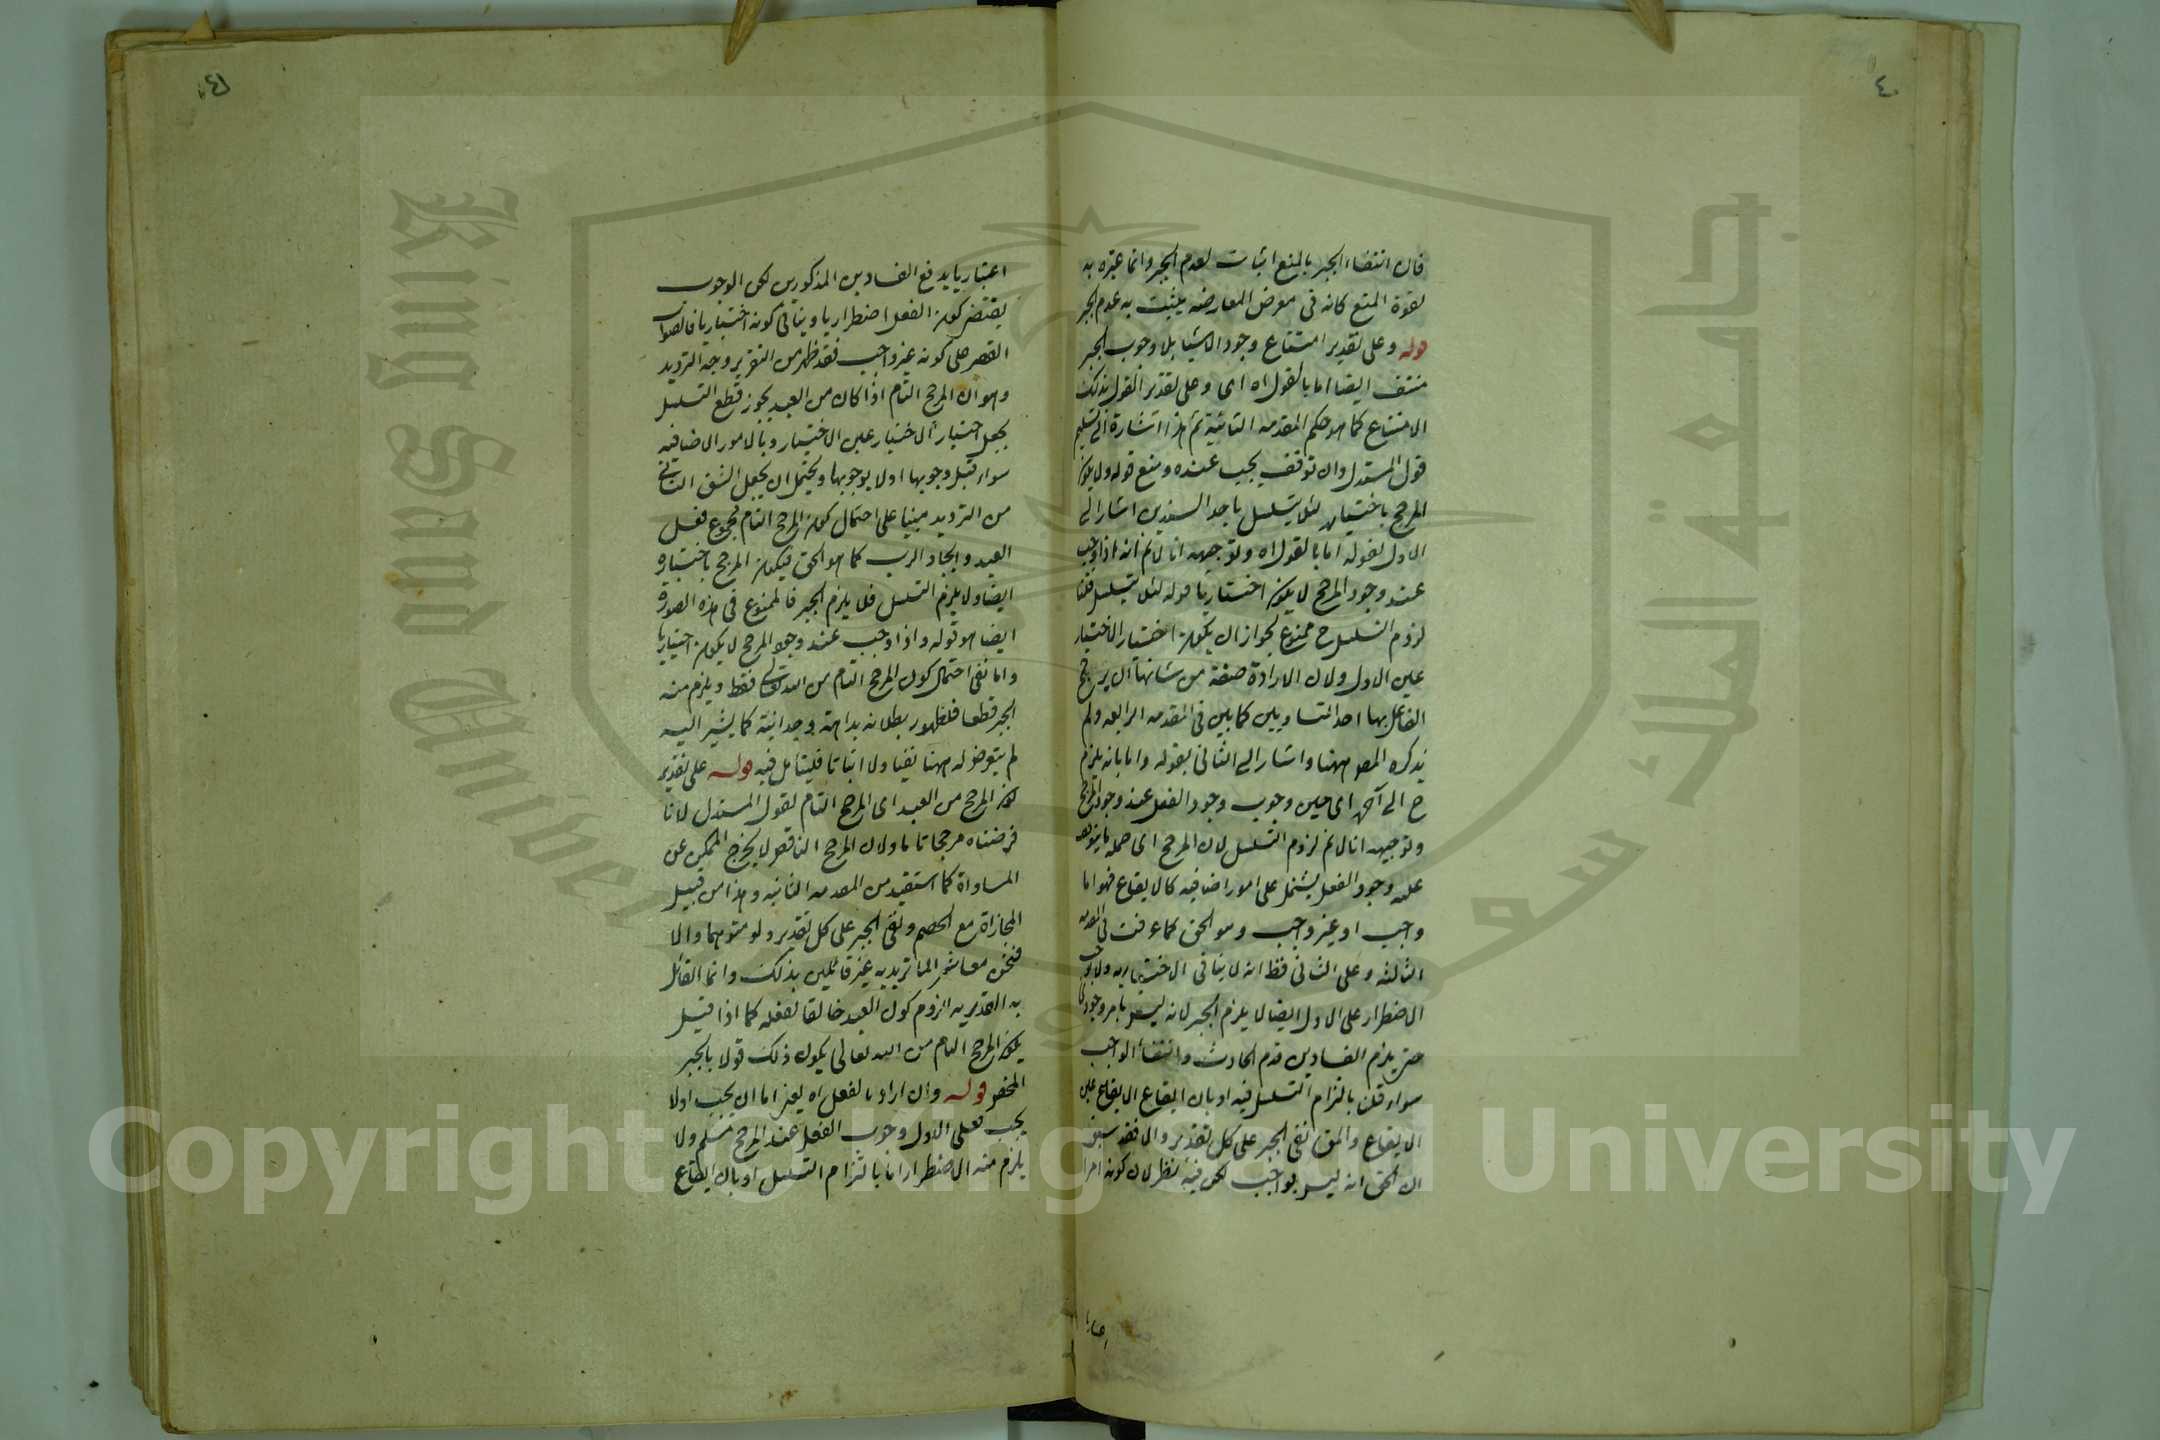 ٤٠
فان انتفاء الجبر بالمنع اثبات لعدم الجبر وانما عبره به
لقوة المنع كانه فى معرض المعارضه يثبت به عدم الجبر
قوله وعلى تقدير امتناع وجود الاشيا بلا وجوب الجبر
منتف ايضا اما بالقول اه اى وعلى تقدير القول بذلك
الامتناع كما هو حكم المقدمه الثانية ثم هذا اشارة الى تسليم
قول المستدل وان توقف يجب عنده ومنع قوله ولا يكون
المرجح باختياره لئلا يتسلسل باحد السندين اشار الى
الاول بقوله اما بالقول اه وتوجيهه انا لانم انه اذا وجب
عند وجود المرجح لا يكون اختياريا قوله لئلا يتسلسل قلنا
لزوم التسلسل ح ممنوع لجواز ان يكون اختيار الاختيار
عين الاول ولان الارادة صفة من شانها ان يرجح
الفاعل بها احد المتساويين كما بين فى المقدمه الرابعه ولم
يذكره المصه ههنا واشار الى الثانى بقوله واما بانه يلزم
ح الى آخره اى حين وجوب وجود الفعل عند وجود المرجح
وتوجيهه انا لانم لزوم التسلسل لان المرجح اى جمله ما يتوقف
عليه وجود الفعل يشتمل على امور اضافيه كالايقاع فهو اما
واجب او غير واجب وهو الحق كما عرفت فى المقدمه
الثالثه وعلى الثانى فظ انه لا ينافى الاختياريه ولا يوجب
الاضطرار على الاول ايضا لا يلزم الجبر لانه ليس بامر وجودى
حتى يلزم الفسادين قدم الحادث وانتفاء الواجب
سواء قلنا بالتزام التسلسل فيه او بان ايقاع الايقاع عين
الايقاع والمق نفى الجبر على كل تقدير والا فقد سبق
ان الحق انه ليس بواجب لكن فيه نظر لان كونه امرا
اعتباريا
٤١
اعتباريا يدفع الفسادين المذكورين لكن الوجوب
يقتضى كون الفعل اضطراريا وينافى كونه اختياريا فالصواب
القصر على كونه غير واجب فقد ظهر من التقرير وجه الترديد
وهو ان المرجح التام اذا كان من العبد يجوز قطع التسلسل
بجعل اختيار الاختيار عين الاختيار وبالامور الاضافيه
سواء قيل وجوبها او لا بوجوبها ويحتمل ان يجعل الشق الثانى
من الترديد مبنيا على احتمال كون المرجح التام مجموع فعل
العبد وايجاد الرب كما هو الحق فيكون المرجح باختياره
ايضا ولا يلزم التسلسل فلا يلزم الجبر فالممنوع فى هذه الصورة
ايضا هو قوله واذا وجب عند وجود المرجح لا يكون اختياريا
واما نفى احتمال كون المرجح التام من الله تعالى فقط ويلزم منه
الجبر قطعا فلظهور بطلانه بداهة وجدانية كما يشير اليه
لم يتعرض له ههنا نفيا ولا اثباتا فليتامل فيه قوله على تقدير
كون المرجح من العبد اى المرجح التام لقول المستدل لانا
فرضناه مرجحا تاما ولان المرجح الناقص لا يخرج الممكن عن
المساواة كما استفيد من المقدمه الثانيه وهذا من قبيل
المجازاة مع الخصم ونفى الجبر على كل تقدير ولو متوهما والا
فنحن معاشر الماتريديه غير قائلين بذلك وانما القائل
به القدريه لزوم كون العبد خالقا لفعله كما اذا قيل
بكون المرجح التام من الله تعالى يكون ذلك قولا بالجبر
المحض قوله وان اراد بالفعل اه يعنى اما ان يجب اولا
يجب فعلى الاول وجوب الفعل عند المرجح مسلم ولا
يلزم منه الاضطرار اما بالتزام التسلسل او بان ايقاع
King Saud University
جامعة الملك سعود
Copyright © King Saud University